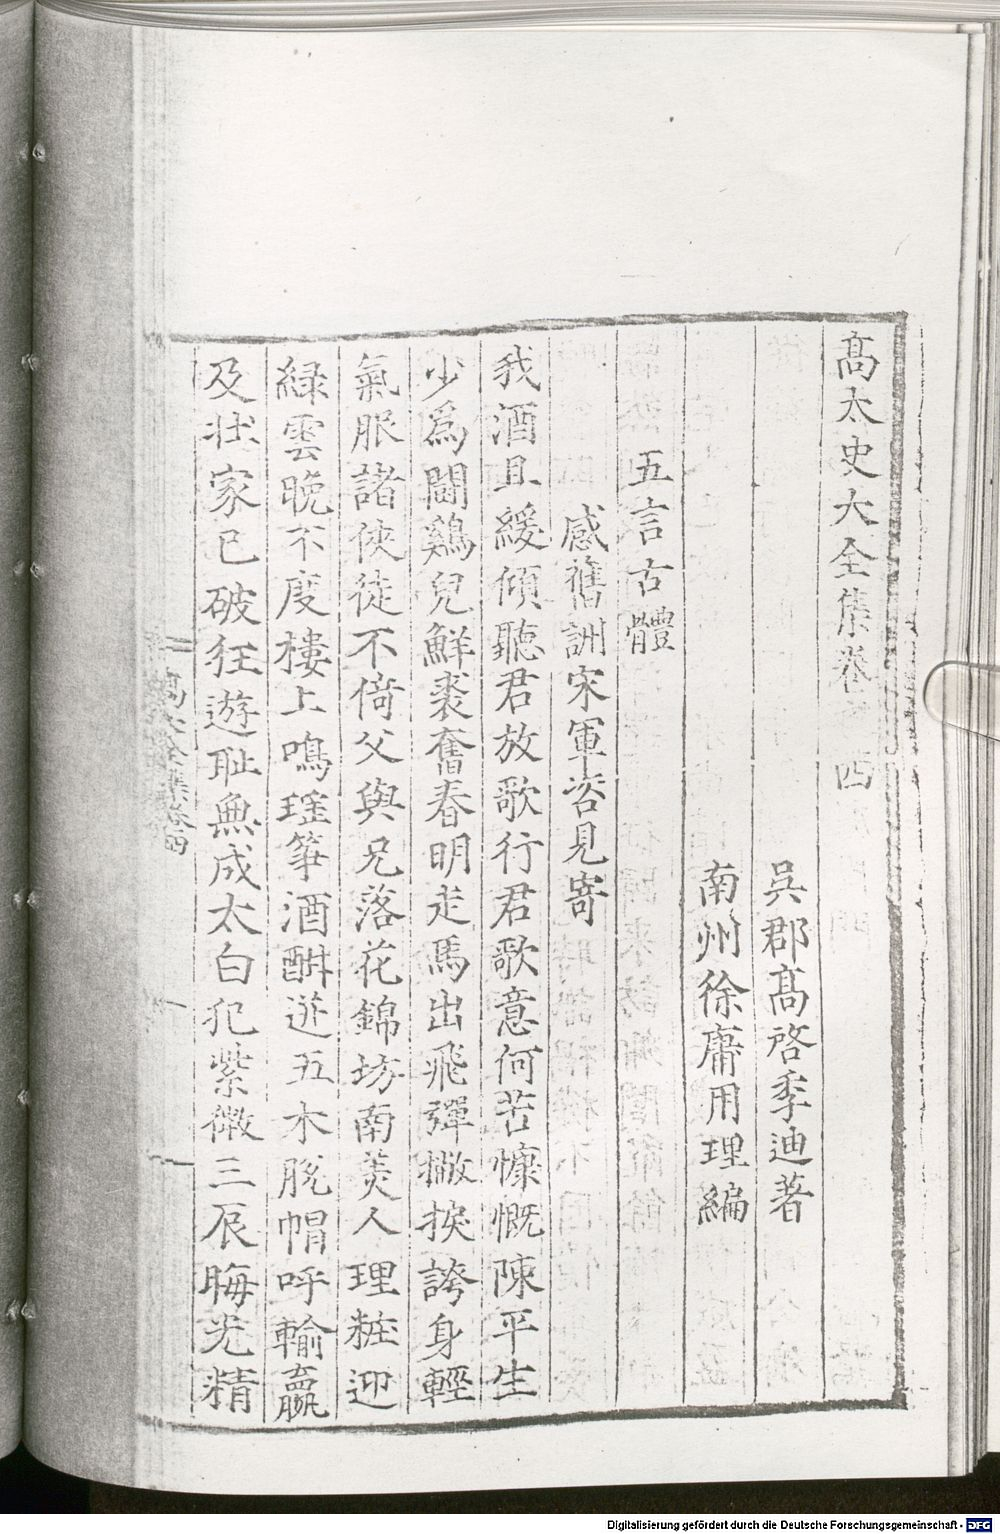 高太史大全集卷 四
吳郡高啓季迪著
南州徐庸用理編
五言古體
感舊詶宋軍咨見寄
我酒且緩傾聽君放歌行君歌意何苦慷慨陳平生
少爲鬬鷄兒鮮裘奮春明走馬出飛彈撇捩誇身輕
氣服諸俠徒不倚父與兄落花錦坊南羙人理粧迎
緑雲晚不度樓上鳴瑤筝酒酣逰五木脫帽呼輸贏
及壮家已破狂遊耻無成太白犯紫微三辰晦光精
高太全集卷四
Digitalisierung gefördert durch die Deutsche Forschungsgemeinschaft - DFG